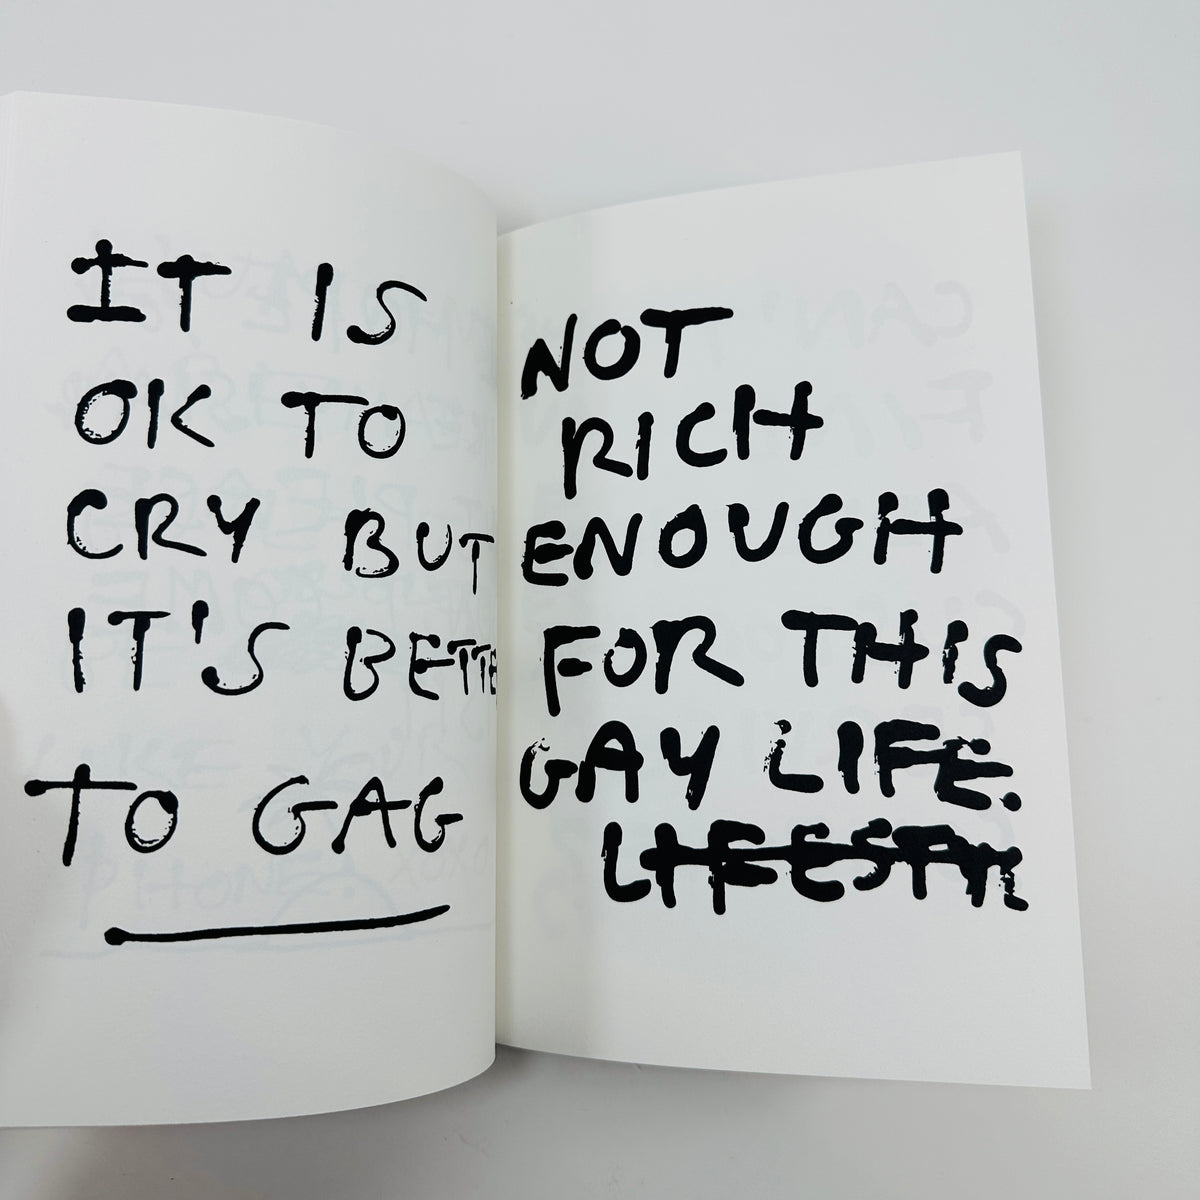 IT IS
OK TO
CRY BUT
IT'S BETTE
TO GAG
NOT
RICH
ENOUGH
FOR THIS
GAY LIFE.
LIFESTYL